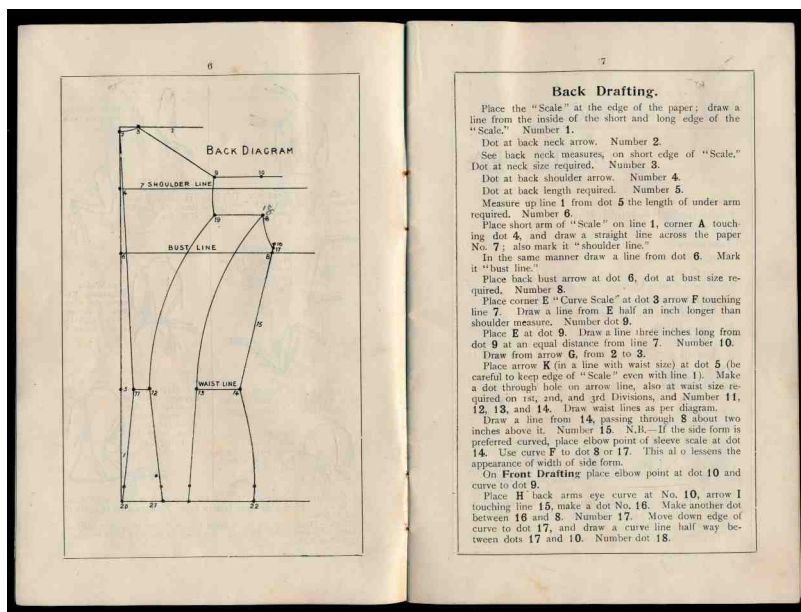 6
BACK DIAGRAM
2
3
1
9
10
7 SHOULDER LINE
4
19
16
BUST LINE
6
8
17
15
WAIST LINE
5
11
12
13
14
1
20
21
22
7
Back Drafting.
Place the "Scale" at the edge of the paper; draw a
line from the inside of the short and long edge of the
"Scale." Number 1.
Dot at back neck arrow. Number 2.
See back neck measures, on short edge of "Scale."
Dot at neck size required. Number 3.
Dot at back shoulder arrow. Number 4.
Dot at back length required. Number 5.
Measure up line 1 from dot 5 the length of under arm
required. Number 6.
Place short arm of "Scale" on line 1, corner A touch-
ing dot 4, and draw a straight line across the paper
No. 7; also mark it "shoulder line."
In the same manner draw a line from dot 6. Mark
it "bust line."
Place back bust arrow at dot 6, dot at bust size re-
quired. Number 8.
Place corner E "Curve Scale" at dot 3 arrow F touching
line 7. Draw a line from E half an inch longer than
shoulder measure. Number dot 9.
Place E at dot 9. Draw a line three inches long from
dot 9 at an equal distance from line 7. Number 10.
Draw from arrow G, from 2 to 3.
Place arrow K (in a line with waist size) at dot 5 (be
careful to keep edge of "Scale" even with line 1). Make
a dot through hole on arrow line, also at waist size re-
quired on 1st, 2nd, and 3rd Divisions, and Number 11,
12, 13, and 14. Draw waist lines as per diagram.
Draw a line from 14, passing through 8 about two
inches above it. Number 15. N.B.—If the side form is
preferred curved, place elbow point of sleeve scale at dot
14. Use curve F to dot 8 or 17. This al o lessens the
appearance of width of side form.
On Front Drafting place elbow point at dot 10 and
curve to dot 9.
Place H back arms eye curve at No. 10, arrow I
touching line 15, make a dot No. 16. Make another dot
between 16 and 8. Number 17. Move down edge of
curve to dot 17, and draw a curve line half way be-
tween dots 17 and 10. Number dot 18.